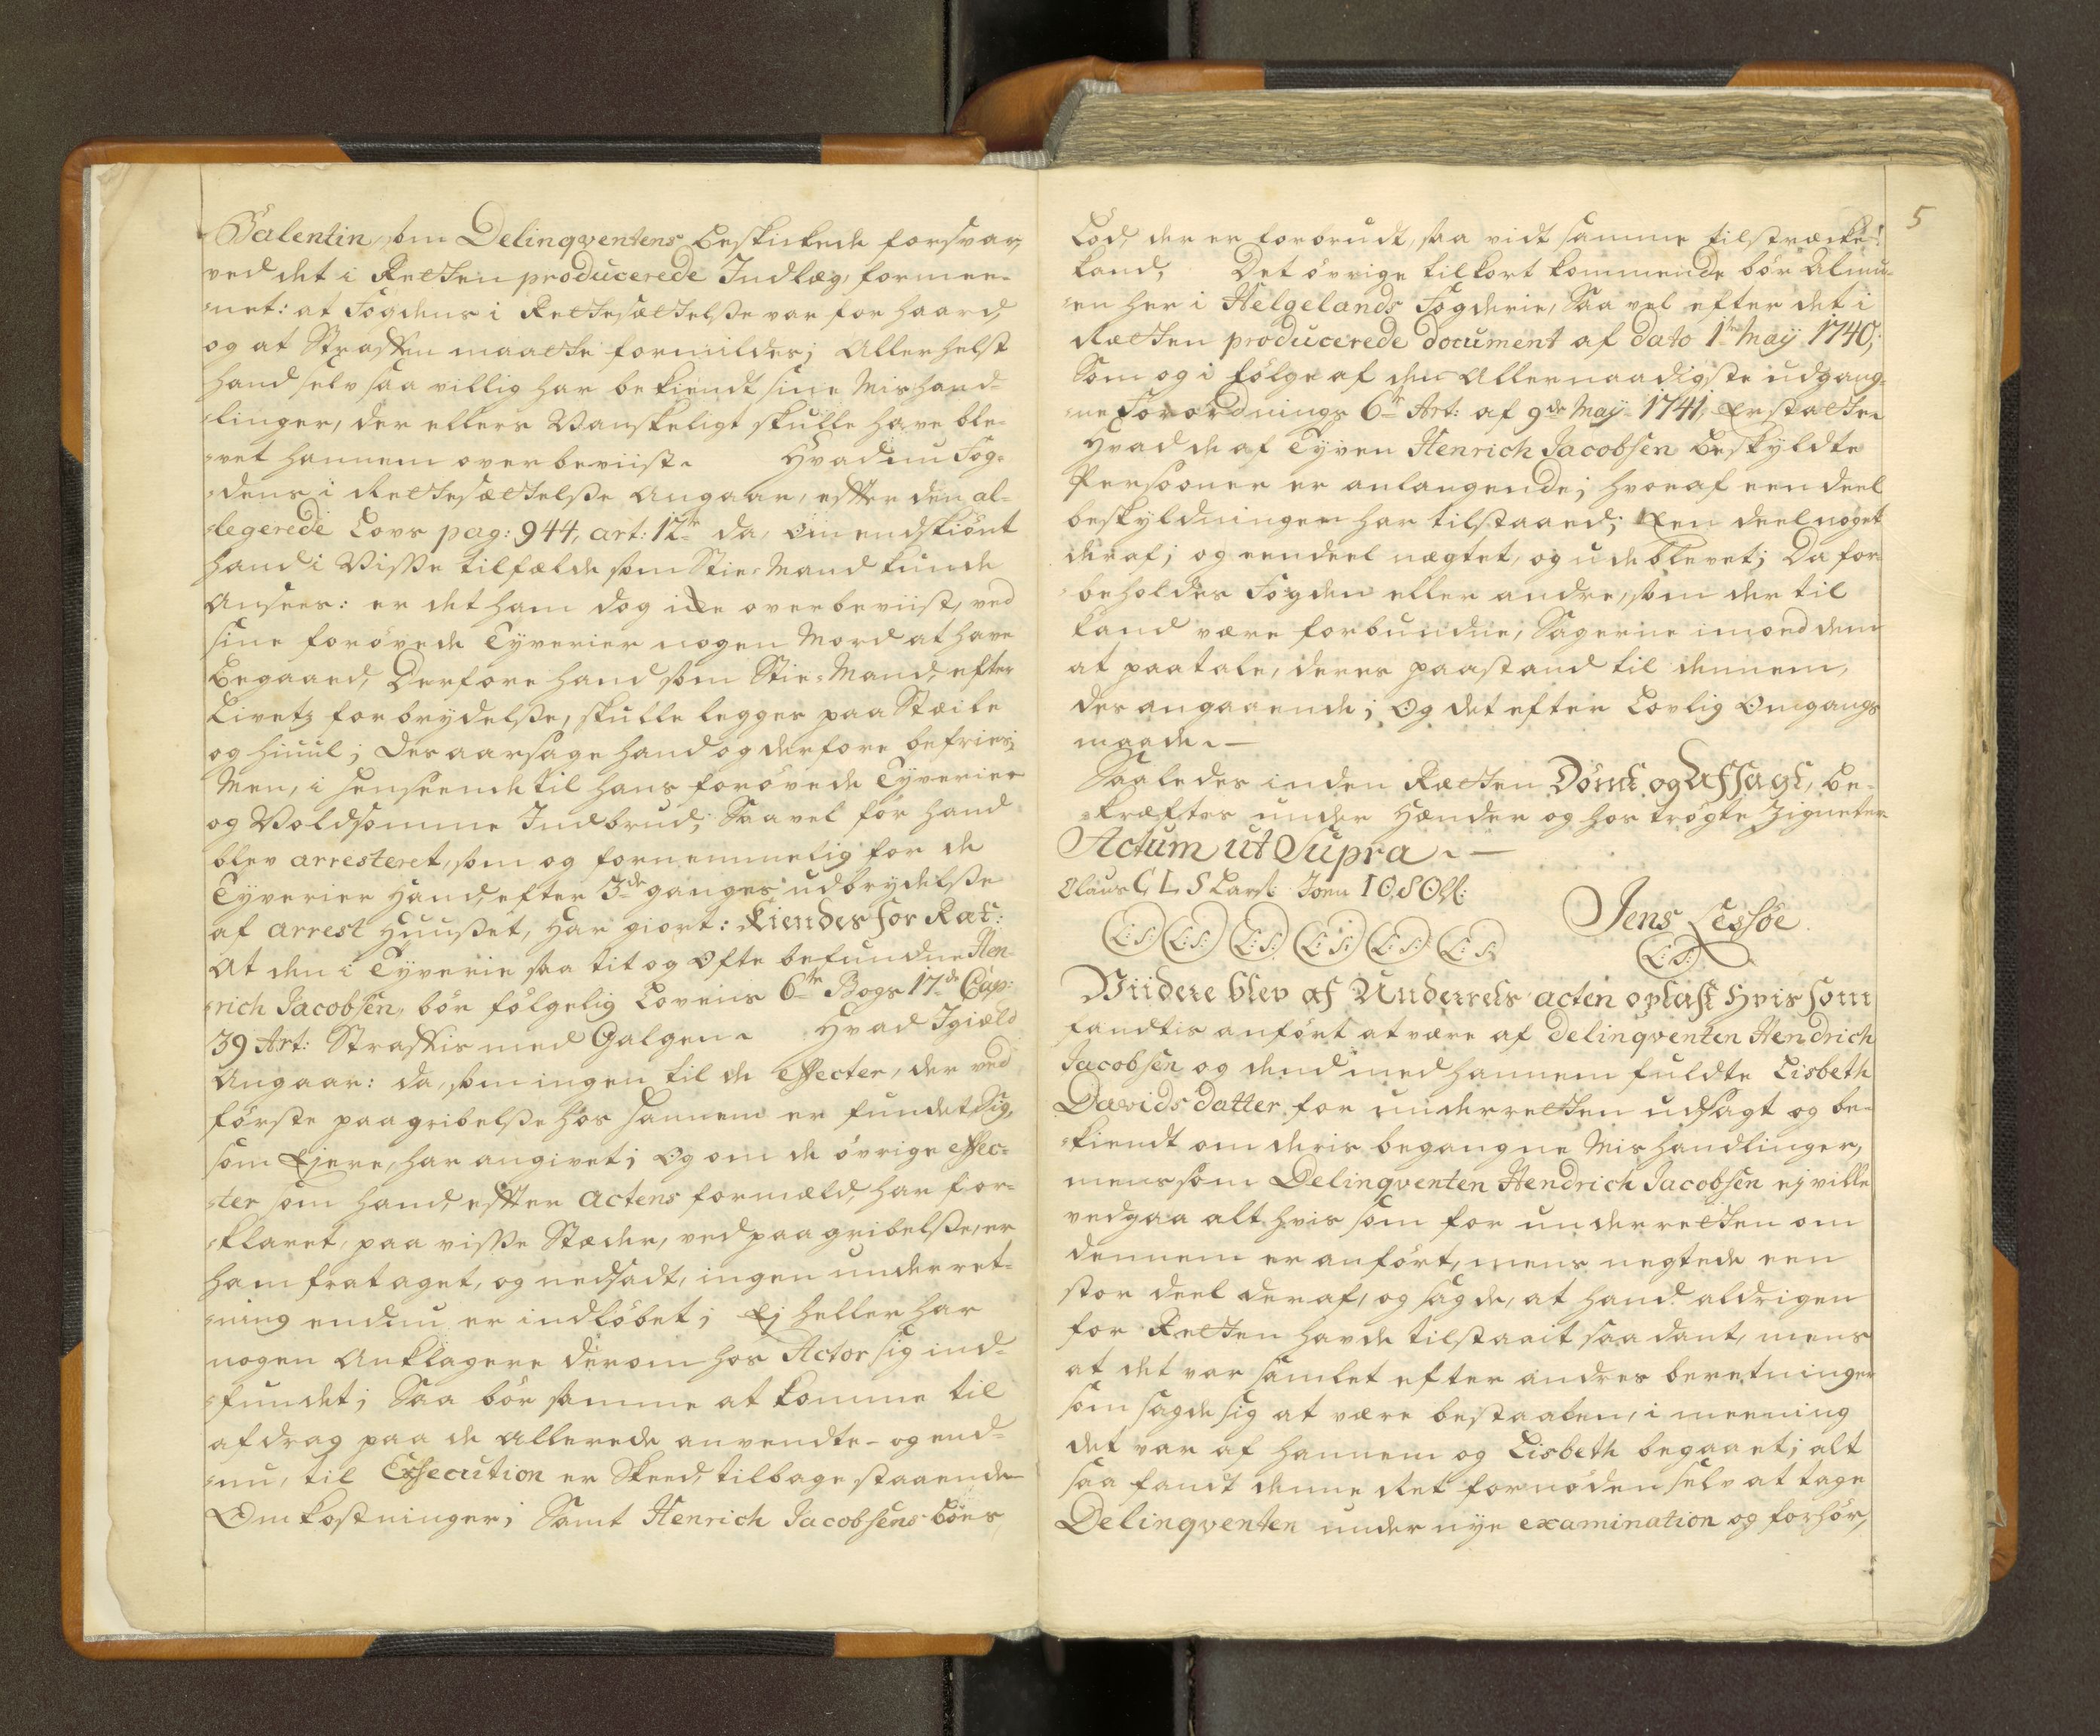 Valentin, som Delinqventens beskikede forsvar,
ved det i Retten producerede Indlæg, formee-
-net: at Fogdens i Rettesættelsse var for haard,
og at Straffen maatte formildes; Allerhelst
hand selv saa villig har bekiendt sine Mishand-
-linger, der ellers Vanskeligt skulle have ble-
-vet hannem overbeviist. Hvad nu Fog-
-dens i Rettesættelsse Angaar, efter den al-
-legerede Lovs pag: 944, art: 12te da, om endskiönt
hand i Visse tilfælde som Stie-Mand kunde
Ansees: er det ham dog icke overbeviist, ved
sine forövede Tyverier nogen Mord at have
Begaaed, Derfore hand som Stie-Mand, efter
Livetz forbrydelsse, skulle legges paa Stæile
og hiuul; Desaarsage hand og derfore befries;
Men, i henseende til hans forövede Tyverier
og Voldsomme Indbrud, Saavel för hand
blev arresteret, som og fornemmelig for de
Tyverier Hand, efter 3de ganges udbrydelsse
af arrest Huusset, har giort: Kiendes for Ræt:
At den i Tyverie saa tit og Ofte befundne Hen-
-rich Jacobsen, bör fölgelig Lovens 6te Bogs 17de Cap:
39 Art: Straffis med Galgen. Hvad Igiæld
Angaar: da, som ingen til de effecter, der ved
förste paagribelsse hos hannem er fundet, Sig,
som Ejere, har angivet; Og om de övrige effec-
-ter som hand, efter Actens formæld, har for-
-klaret, paa visse Stæder, ved paagribelsse, er
ham frataget, og nedsadt, ingen underret-
-ning endnu er indlöbet; Ej heller har
nogen Anklagere derom hos Actor sig ind-
-fundet; Saa bör samme at komme til
afdrag paa de allerede anvendte- og end-
-nu, til Exsecution er Skeed, tilbagestaaende
Omkostninger; Samt Henrich Jacobsens Boes
5
Lod, der er forbrudt, saa vidt samme tilstrække
kand, Det övrige tilkort kommende bör Almu-
-en her i Helgelands Fogderie, Saa vel efter det i
Rætten producerede document af dato 1te Maÿ 1740;
Som og i fölge af den Allernaadigste udgang-
-ne Forordnings 6te Art: af 9de Maÿ 1741, Erstatte.
Hvad de af Tyven Henrich Jacobsen Beskyldte
Persooner er anlangende; hvoraf een deel
beskyldningen har tilstaaed; Een deel noget
deraf; og een deel nægtet, og udeblevet; Da for
-beholdes Fogden eller andre, som der til
kand være forbundne, Sagerne imoed dem
at paatale, deres paastand til dennem,
des angaaende; Og det efter Lovlig Omgangs
maade. —
Saaledes inden Rætten Dömt og Afsagt, be-
-kræftes under Hænder og hos trögte Zigneter
Actum ut Supra. —
Olaus C L S Lars: Joen I O S Ols:
L:S: L:S: L:S: L:S: L:S: L:S: Jens Lessöe.
L:S:
Viidere blev af Underrets acten oplæst hvis som
fandtis anfört at være af Delinqventen Hendrich
Jacobsen og dend med hannem fuldte Lisbeth
Davids datter for underretten udsagt og be-
-kiendt om deris begangne Mishandlinger,
mens som Delinqventen Hendrich Jacobsen ej ville
vedgaa alt hvis som for underretten om
dennem er anfört, mens negtede een
stor deel deraf, og sagde, at hand aldrigen
for Retten havde tilstaait saa dant, mens
at det var samlet efter andres beretninger
som sagde sig at være bestaalen, i meening
det var af hannem og Lisbeth begaaet; alt
saa fandt denne Ret fornöden selv at tage
Delinqventen under nye examination og forhör,